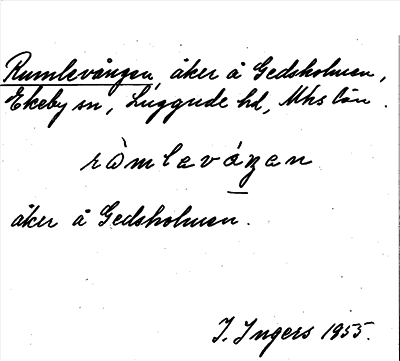 Rumlevången, åker å Gedsholmen,
Ekeby sn, Luggude hd, Mhs län.
ràmlaváŋan
åker å Gedsholmen.
I. Ingers 1955.